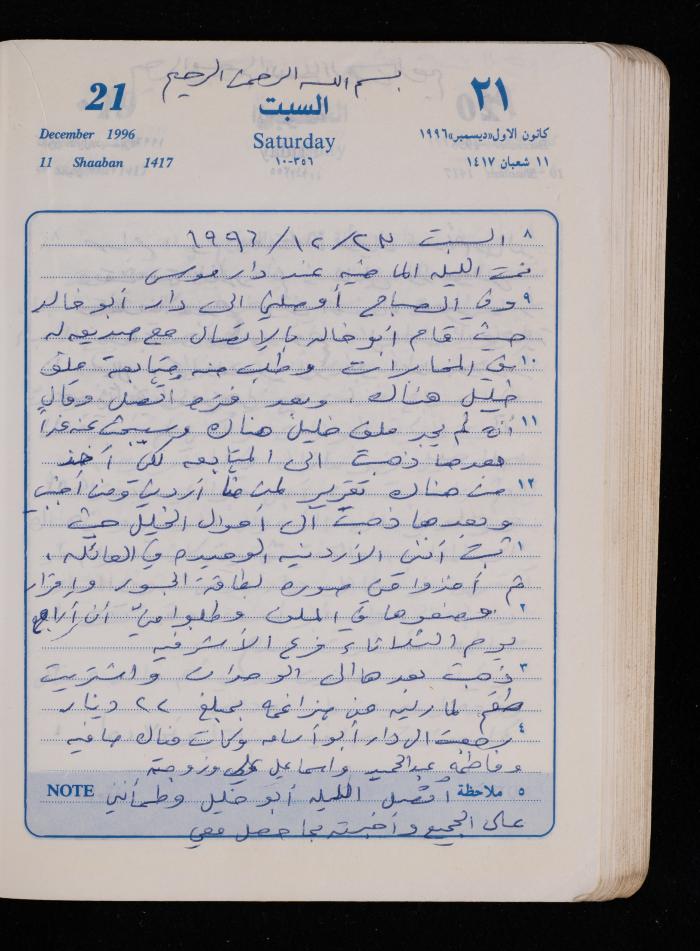 بسم الله الرحمن الرحيم
21 السبت ٢١
December 1996 Saturday كانون الاول «ديسمبر» ١٩٩٦
11 Shaaban 1417 ٣٥٦-١٠ ١١ شعبان ١٤١٧
٨ السبت ٢٣/١٢/١٩٩٦
نمت الليله الماضيه عند دار موسى
٩ وفي الصباح أوصلني الى دار أبو خالد
حيث قام ابو خالد بالاتصال مع صديق له
١٠ في المخابرات وطلب منه متابعة ملف
خليل هناك . وبعد فتره اتصل وقال
١١ أنه لم يجد ملف خليل هناك وسيبحث عنه غداً
بعدها ذهبت الى المتابعه لكي آخذ
١٢ من هناك تقرير لمن هنا أردني ومن أجنبي
وبعدها ذهبت الى أحوال الخليل حيث
١ ثبت أنني الأردنيه الوحيده في العائله .
ثم أخذوا مني صوره لبطاقة الجسور وإقرار
٢ وضعوها في الملف وطلبوا مني أن أراجع
يوم الثلاثاء فرع الأشرفيه
٣ ذهبت بعدها الى الوحدات واشتريت
طقم لمارينه من هزاعمه بمبلغ ٢٢ دينار
٤ رجعت الى دار أبو أسامه وكانت هناك صافيه
وفاطمه عبد الحميد واسماعيل علي وزوجته
NOTE ملاحظة ٥ أتصل الليله أبو خليل وطمأنني
على الجميع وأخبرته بما حصل معي